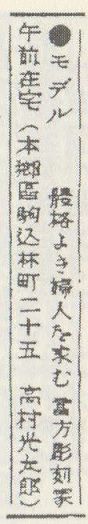 ●モデル 骨格よき婦人を求む 当方彫刻家
午前在宅(本郷區駒込林町二十五 高村光太郎)